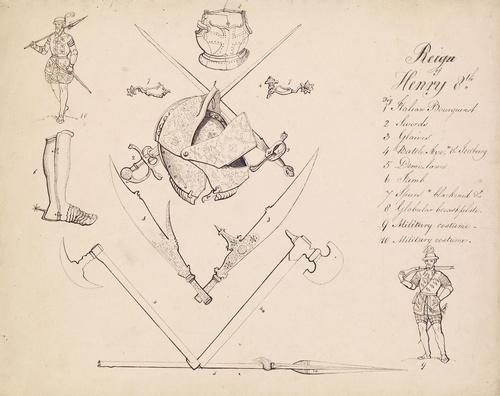 Reign
of
Henry 8th.
Fig
1 Italian Bourguinot
2 Swords
3 Glaives
4 Battle Axe
5 Demi lance
6 Jamb
7 Spurs blackened
8 Globular breastplate
9 Military costume
10 Military costume
10
9